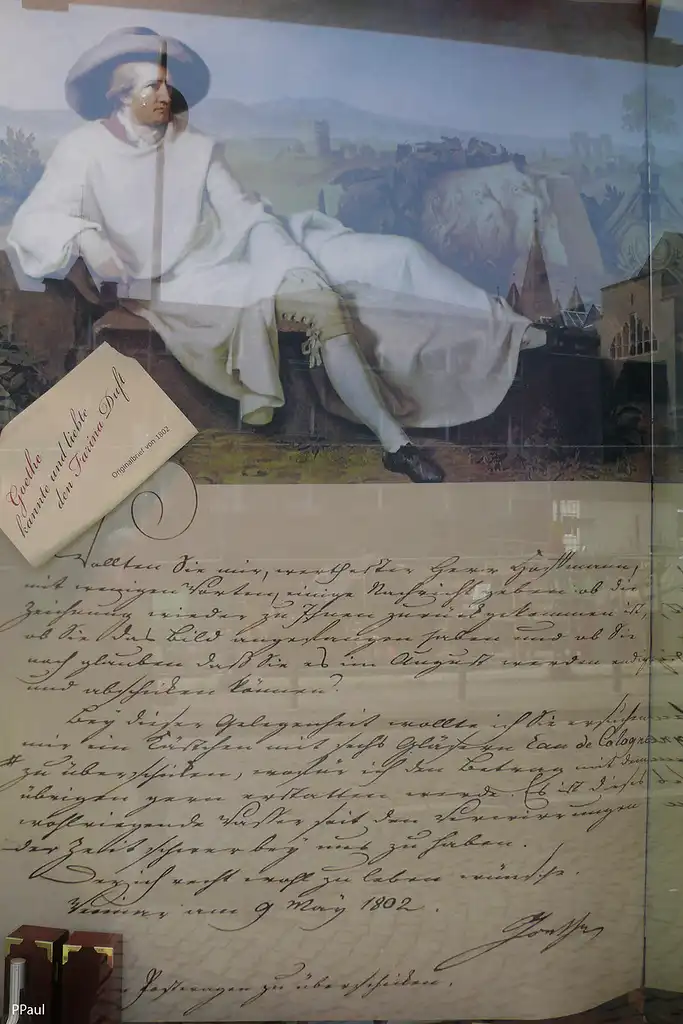 Goethe
kannte und liebte
den Farina Duft
Originalbrief von 1802
Wollten Sie mir, werthester Herr Hoffmann,
mit wenigen Worten, einige Nachricht geben ob die
Zeichnung wieder zu Ihnen zurückgekommen ist,
ob Sie das Bild angefangen haben und ob Sie
noch glauben daß Sie es im August werden
und abschicken können?
Bey dieser Gelegenheit wollte ich Sie ersuchen
mir ein Kästchen mit sechs Gläsern Eau de Cologne
zu überschicken, wofür ich den Betrag mit dem
übrigen gern erstatten werde. Es ist dieses
wohlriechende Wasser seit den Verwirrungen
der Zeit schwer bey uns zu haben.
Der ich recht wohl zu leben wünsche.
Weimar am 9 May 1802.
Goethe
Postwagen zu überschicken.
PPaul